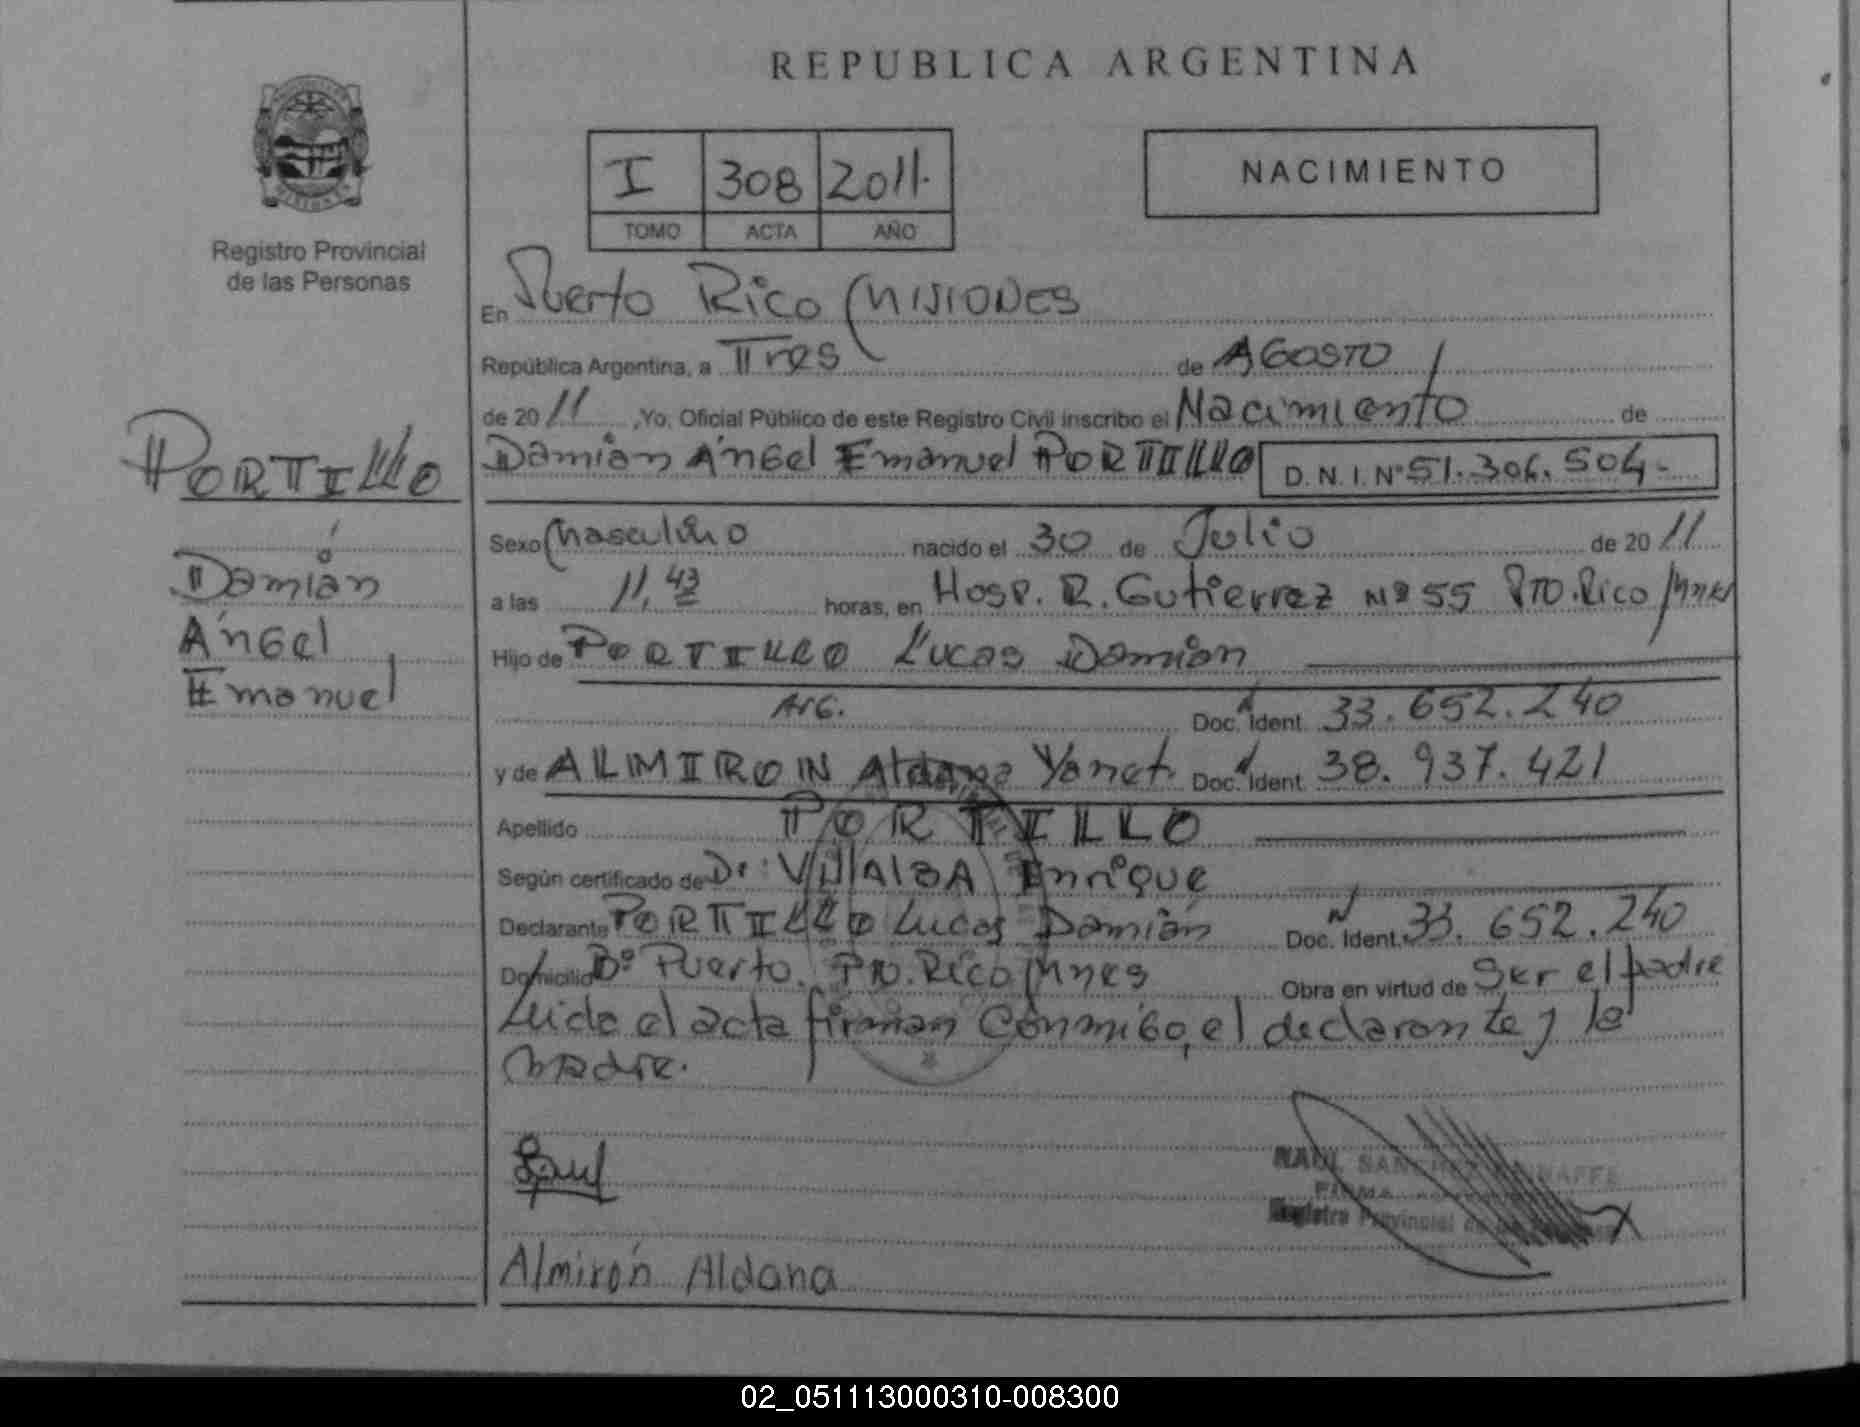 REPUBLICA ARGENTINA
I 308 2011.
TOMO ACTA AÑO
NACIMIENTO
Registro Provincial
de las Personas
PORTILLO
Damián
Ángel
Emanuel
En Puerto Rico Misiones
República Argentina, a Tres de Agosto
de 20 11 ,Yo, Oficial Público de este Registro Civil inscribo el Nacimiento de
Damián Ángel Emanuel PORTILLO D.N.I. Nº 51.306.504-
Sexo Masculino nacido el 30 de Julio de 20 11
a las 11,43 horas, en Hosp. R. Gutierrez Nº 55 Pto. Rico/Mnes
Hijo de PORTILLO Lucas Damián
Arg. Doc. Ident. 33.652.240
y de ALMIRON Aldana Yanet Doc. Ident. 38.937.421
Apellido PORTILLO
Según certificado de Dr. VILLALBA Enrique
Declarante PORTILLO Lucas Damián Doc. Ident. 33.652.240
Domicilio Bº Puerto. Pto. Rico/Mnes Obra en virtud de Ser el padre
Leída el acta firman conmigo, el declarante y la
madre.
RAUL
Registro Provincial de las Personas
Almirón Aldana
02_051113000310-008300